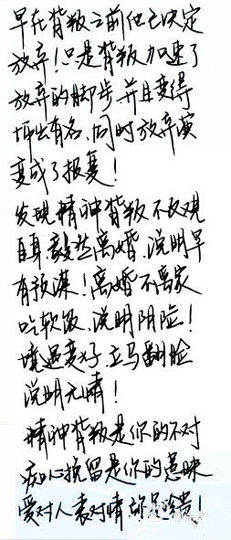 早在背叛之前他已决定
放弃！只是背叛加速了
放弃的脚步 并且变得
师出有名.同时放弃演
变成了报复！
发现精神背叛不权现
自身毅然离婚.说明早
有预谋！离婚不离家
吃软饭.说明阴险！
境遇变好.立马翻脸
说明无情！
精神背叛是你的不对
痴心挽留是你的愚昧
爱对人表对情 都是错！